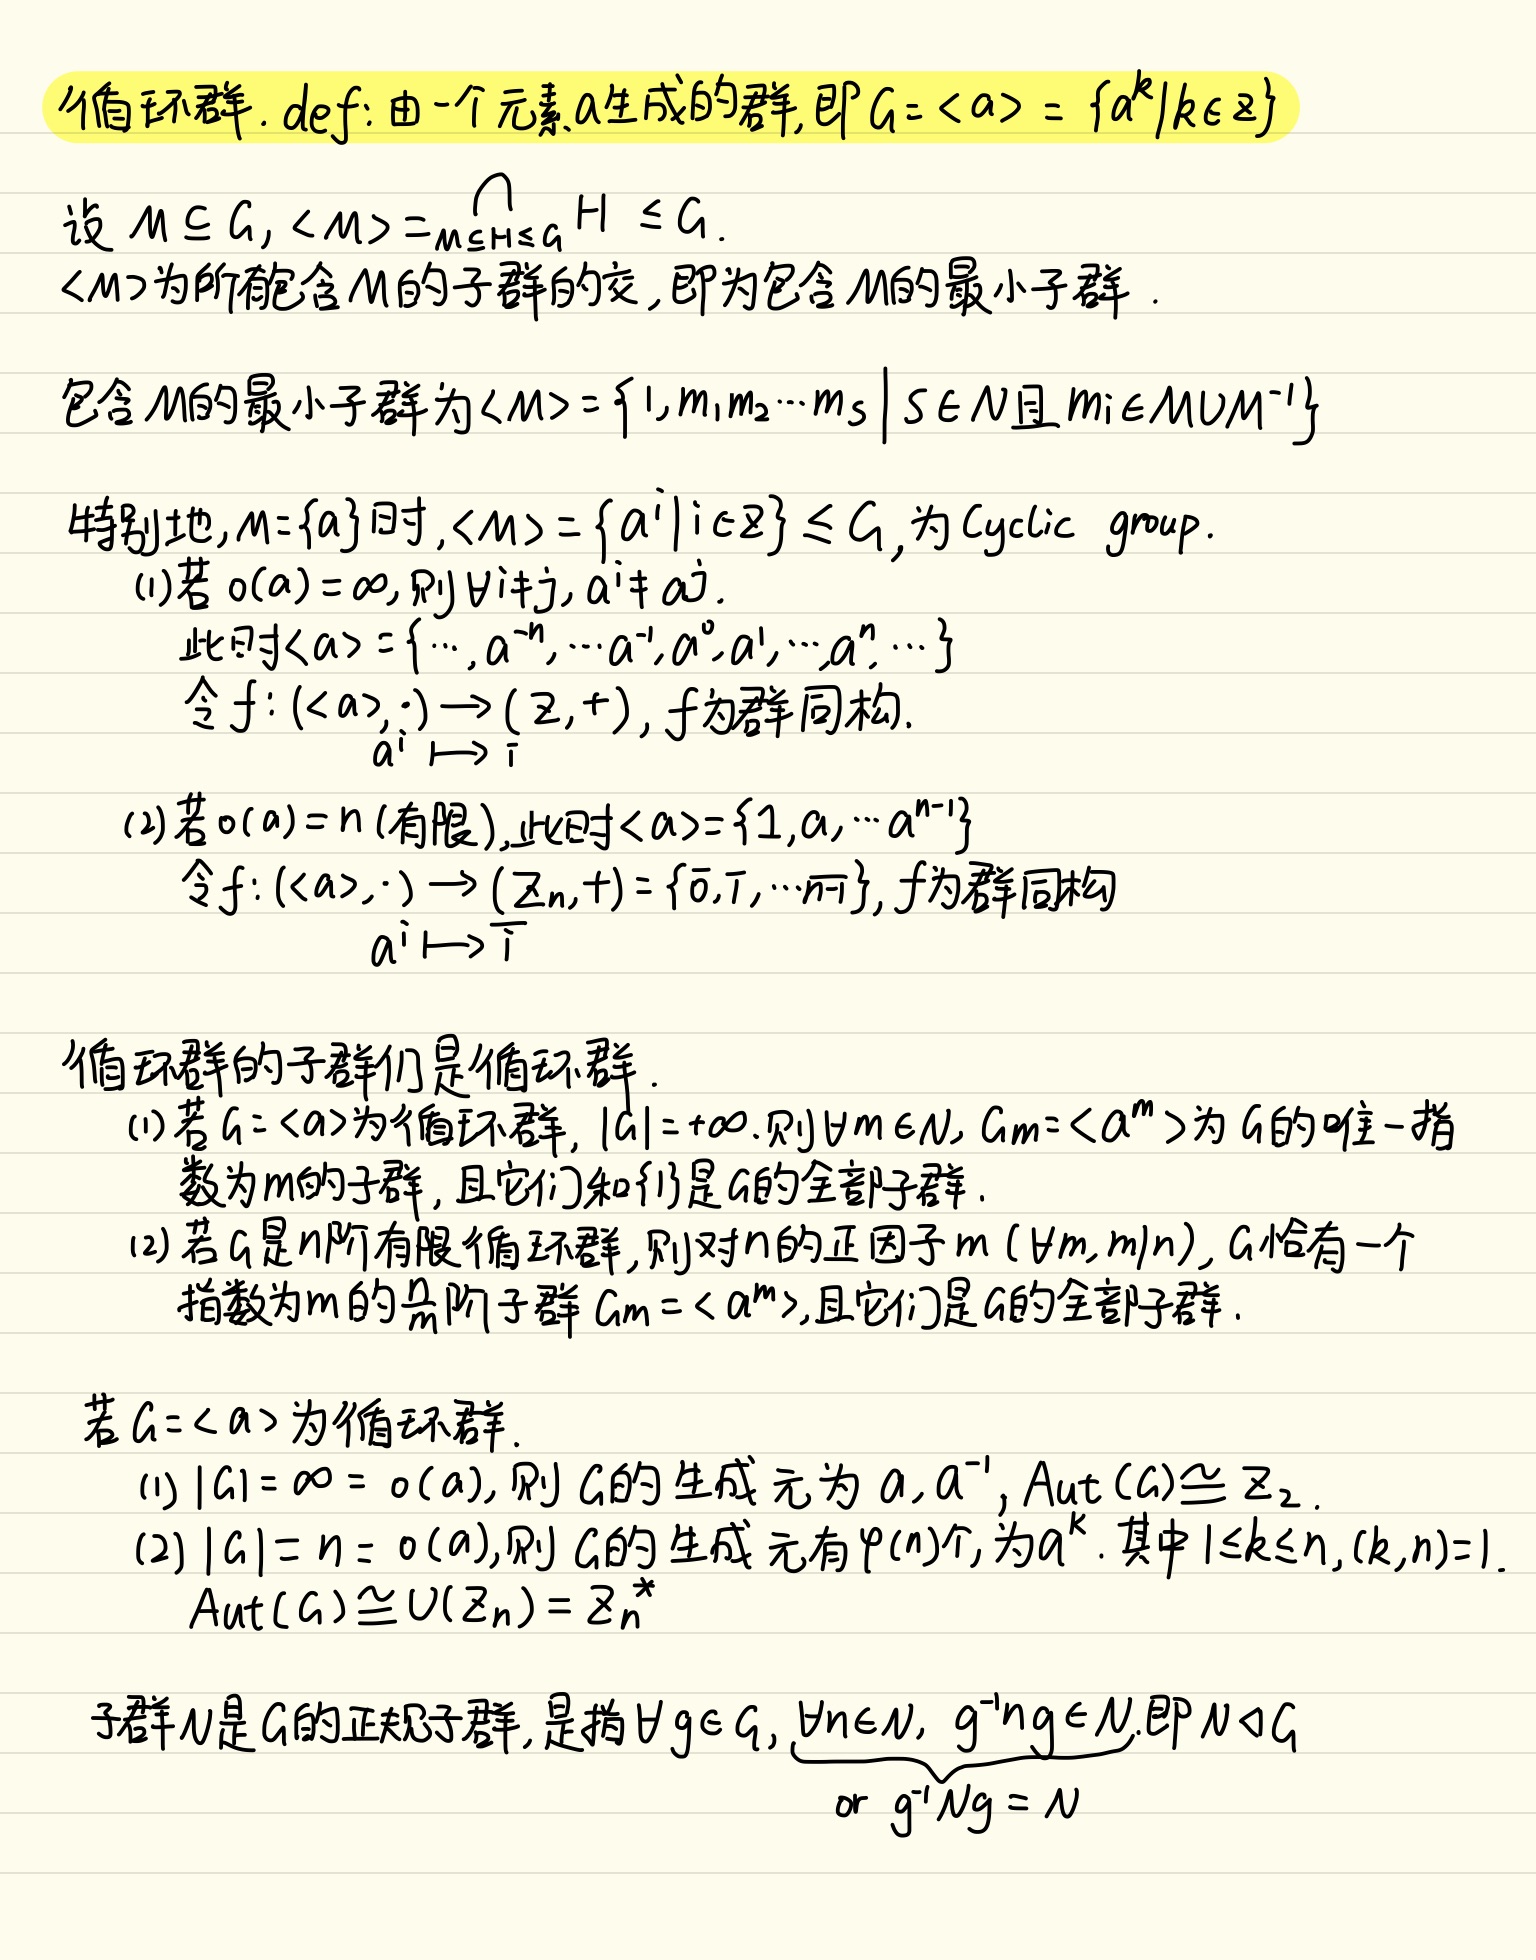 循环群. def: 由一个元素a生成的群, 即G=<a> = {a^k|k∈Z}
设 M⊆G, <M>=⋂_{M⊆H≤G} H ≤G.
<M>为所有包含M的子群的交, 即为包含M的最小子群.
包含M的最小子群为<M>={1,m₁m₂…m_s | s∈N且m_i∈M∪M^{-1}}
特别地, M={a}时, <M>={a^i|i∈Z}≤G, 为Cyclic group.
(1)若o(a)=∞, 则∀i≠j, a^i≠a^j.
此时<a>={…,a^{-n},…a^{-1},a^0,a^1,…,a^n,…}
令f:(<a>,·)→(Z,+), f为群同构.
a^i ↦ i
(2)若o(a)=n(有限), 此时<a>={1,a,…a^{n-1}}
令f:(<a>,·)→(Z_n,+)={0̅,1̅,…\overline{n-1}}, f为群同构
a^i ↦ \overline{i}
循环群的子群们是循环群.
(1)若G=<a>为循环群, |G|=+∞.则∀m∈N, G_m=<a^m>为G的唯一指
数为m的子群, 且它们和{1}是G的全部子群.
(2)若G是n阶有限循环群, 则对n的正因子m(∀m,m|n), G恰有一个
指数为m的\frac{n}{m}阶子群G_m=<a^m>,且它们是G的全部子群.
若G=<a>为循环群.
(1)|G|=∞=o(a), 则G的生成元为a,a^{-1}, Aut(G)≅Z₂.
(2)|G|=n=o(a),则G的生成元有φ(n)个, 为a^k.其中1≤k≤n,(k,n)=1.
Aut(G)≅U(Z_n)=Z_n^*
子群N是G的正规子群, 是指∀g∈G, ∀n∈N, g^{-1}ng∈N.即N◁G
or g^{-1}Ng=N